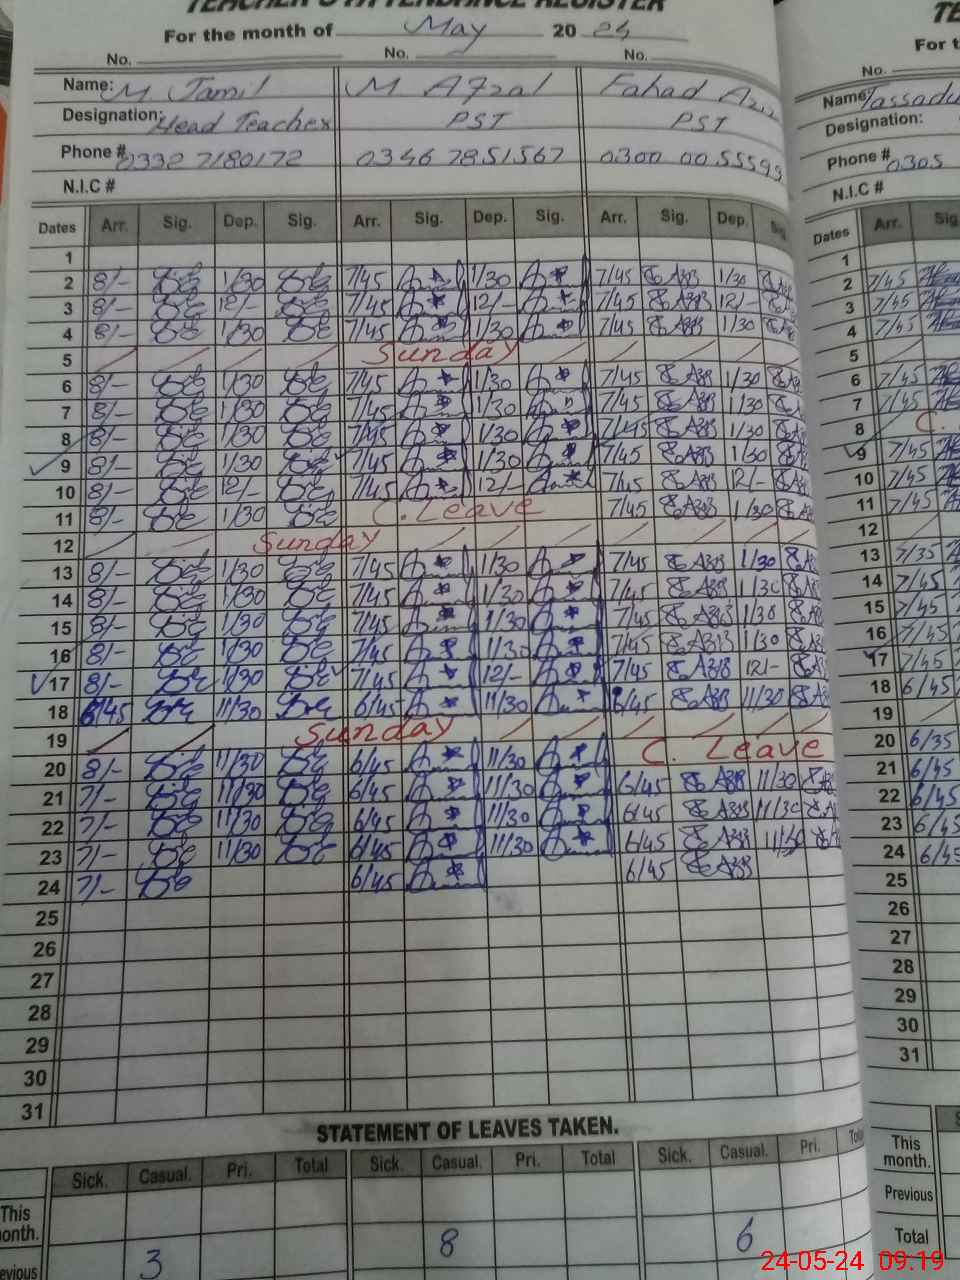 TEACHER'S ATTENDANCE REGISTER
For the month of May 20 24
No. No. No.
Name: M Jamil M Afzal Fahad Aziz
Designation: Head Teacher PST PST
Phone # 0332 7180172 0346 7851567 0300 0055599
N.I.C #
Dates Arr. Sig. Dep. Sig. Arr. Sig. Dep. Sig. Arr. Sig. Dep. Sig.
1
2 8/- 1/30 7/45 1/30 7/45 1/30
3 8/- 12/- 7/45 12/- 7/45 12/-
4 8/- 1/30 7/45 1/30 7/45 1/30
5 Sunday
6 8/- 1/30 7/45 1/30 7/45 1/30
7 8/- 1/30 7/45 1/30 7/45 1/30
8 8/- 1/30 7/45 1/30 7/45 1/30
9 8/- 1/30 7/45 1/30 7/45 1/30
10 8/- 12/- 7/45 12/- 7/45 12/-
11 8/- 1/30 C. Leave 7/45 1/30
12 Sunday
13 8/- 1/30 7/45 1/30 7/45 1/30
14 8/- 1/30 7/45 1/30 7/45 1/30
15 8/- 1/30 7/45 1/30 7/45 1/30
16 8/- 1/30 7/45 11/30 7/45 1/30
17 8/- 1/30 7/45 12/- 7/45 12/-
18 6/45 11/30 6/45 11/30 6/45 11/30
19 Sunday
20 8/- 11/30 6/45 11/30 C. Leave
21 7/- 11/30 6/45 11/30 6/45 11/30
22 7/- 11/30 6/45 11/30 6/45 11/30
23 7/- 11/30 6/45 11/30 6/45 11/30
24 7/- 6/45 6/45
25
26
27
28
29
30
31
STATEMENT OF LEAVES TAKEN.
Sick. Casual. Pri. Total Sick. Casual. Pri. Total Sick. Casual. Pri. Total
This month.
Previous 3 8 6
TE
For t
No.
Name
Designation:
Phone # 0305
N.I.C #
Dates Arr. Sig
1
2 7/45
3 7/45
4 7/45
5
6 7/45
7 7/45
8 C.
9 7/45
10 7/45
11 7/45
12
13 7/35
14 7/45
15 7/45
16 7/45
17 7/45
18 6/45
19
20 6/35
21 6/45
22 6/45
23 6/45
24 6/45
25
26
27
28
29
30
31
This month.
Previous
Total
24-05-24 09.19